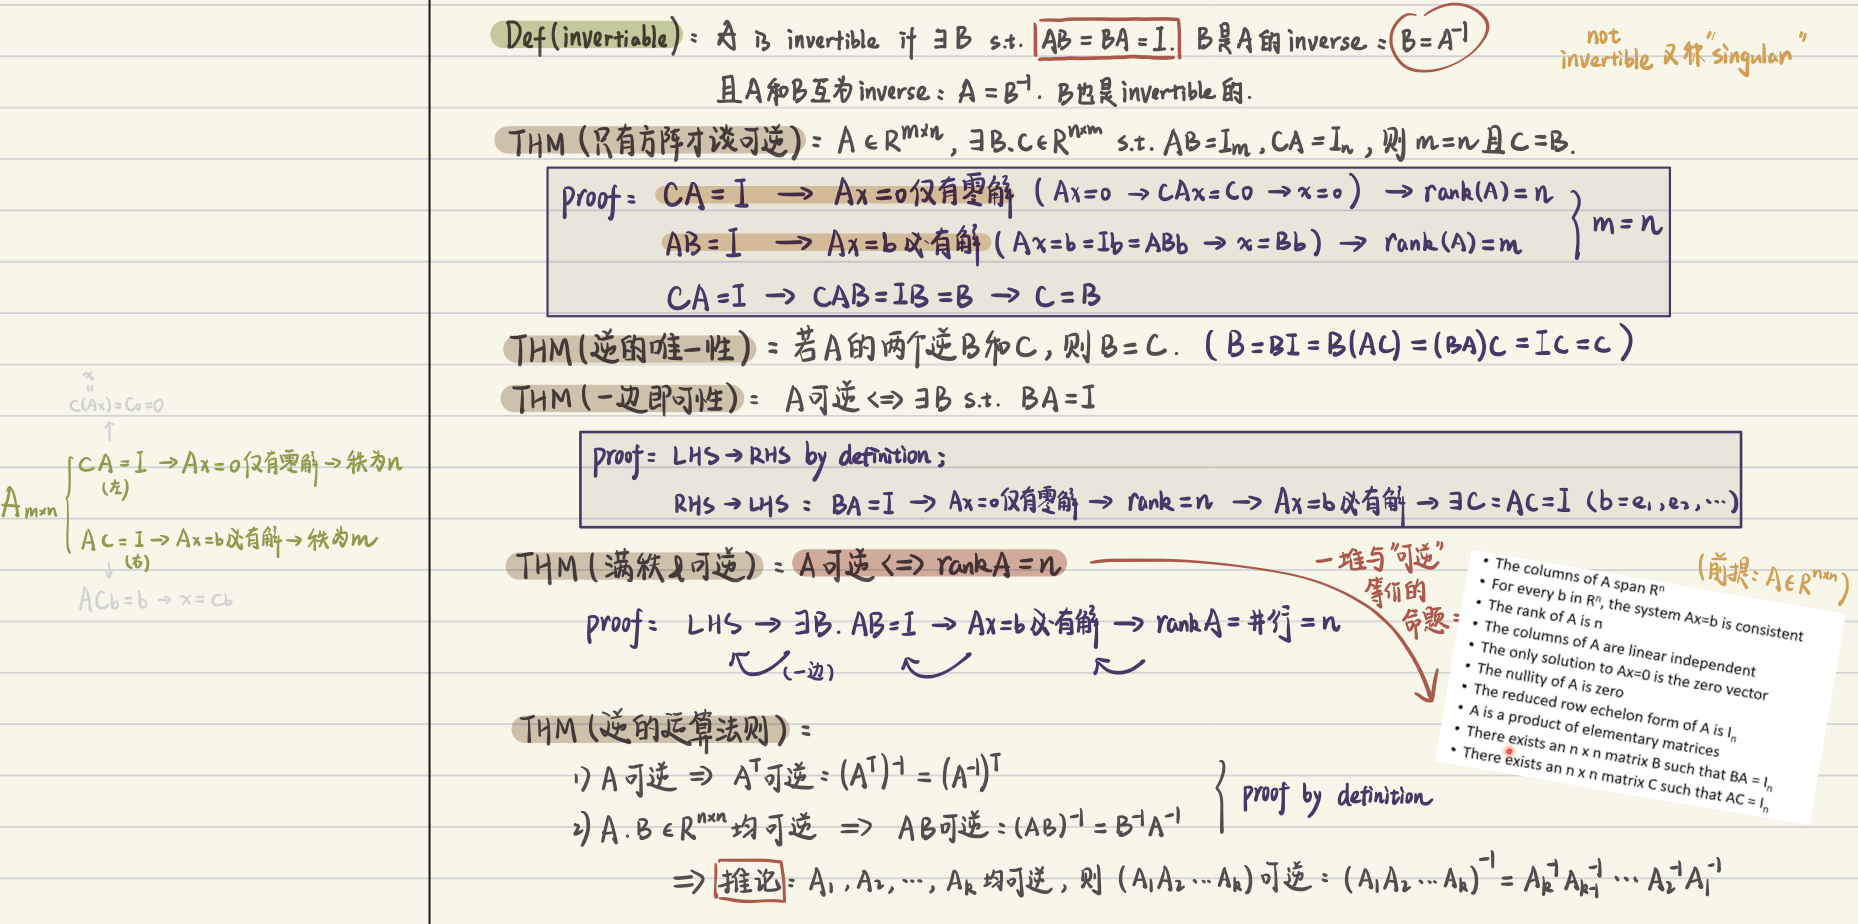 Def(invertiable): A is invertible if ∃B s.t. AB = BA = I. B是A的inverse: B = A⁻¹
not
invertible 又称 "singular"
且A和B互为inverse: A = B⁻¹. B也是invertible的.
THM (只有方阵才谈可逆): A ∈ R^{m×n}, ∃B、C ∈ R^{n×m} s.t. AB = I_m, CA = I_n, 则 m=n 且 C=B.
proof: CA = I → Ax=0仅有零解 (Ax=0 → CAx=C0 → x=0) → rank(A)=n
AB = I → Ax=b必有解 (Ax=b=Ib=ABb → x=Bb) → rank(A)=m
} m = n
CA = I → CAB = IB = B → C = B
THM (逆的唯一性): 若A的两个逆B和C, 则B = C. (B = BI = B(AC) = (BA)C = IC = C)
THM (一边即可性): A可逆 <=> ∃B s.t. BA = I
proof: LHS → RHS by definition;
RHS → LHS: BA = I → Ax=0仅有零解 → rank=n → Ax=b必有解 → ∃C: AC = I (b=e₁,e₂,⋯)
x
=
C(Ax)=C0=0
↑
A_{m×n} { CA = I → Ax=0仅有零解 → 秩为n
(左)
AC = I → Ax=b必有解 → 秩为m
(右)
↓
ACb=b → x=Cb
THM (满秩&可逆): A可逆 <=> rankA = n
proof: LHS → ∃B. AB=I → Ax=b必有解 → rankA = #行 = n
(一边)
一堆与"可逆"
等价的
命题:
(前提: A∈R^{n×n})
• The columns of A span Rⁿ
• For every b in Rⁿ, the system Ax=b is consistent
• The rank of A is n
• The columns of A are linear independent
• The only solution to Ax=0 is the zero vector
• The nullity of A is zero
• The reduced row echelon form of A is Iₙ
• A is a product of elementary matrices
• There exists an n x n matrix B such that BA = Iₙ
• There exists an n x n matrix C such that AC = Iₙ
THM (逆的运算法则):
1) A可逆 => Aᵀ可逆: (Aᵀ)⁻¹ = (A⁻¹)ᵀ
2) A.B ∈ R^{n×n} 均可逆 => AB可逆: (AB)⁻¹ = B⁻¹A⁻¹
} proof by definition
=> 推论: A₁, A₂, ⋯, A_k 均可逆, 则 (A₁A₂⋯A_k) 可逆: (A₁A₂⋯A_k)⁻¹ = A_k⁻¹A_{k-1}⁻¹⋯A₂⁻¹A₁⁻¹